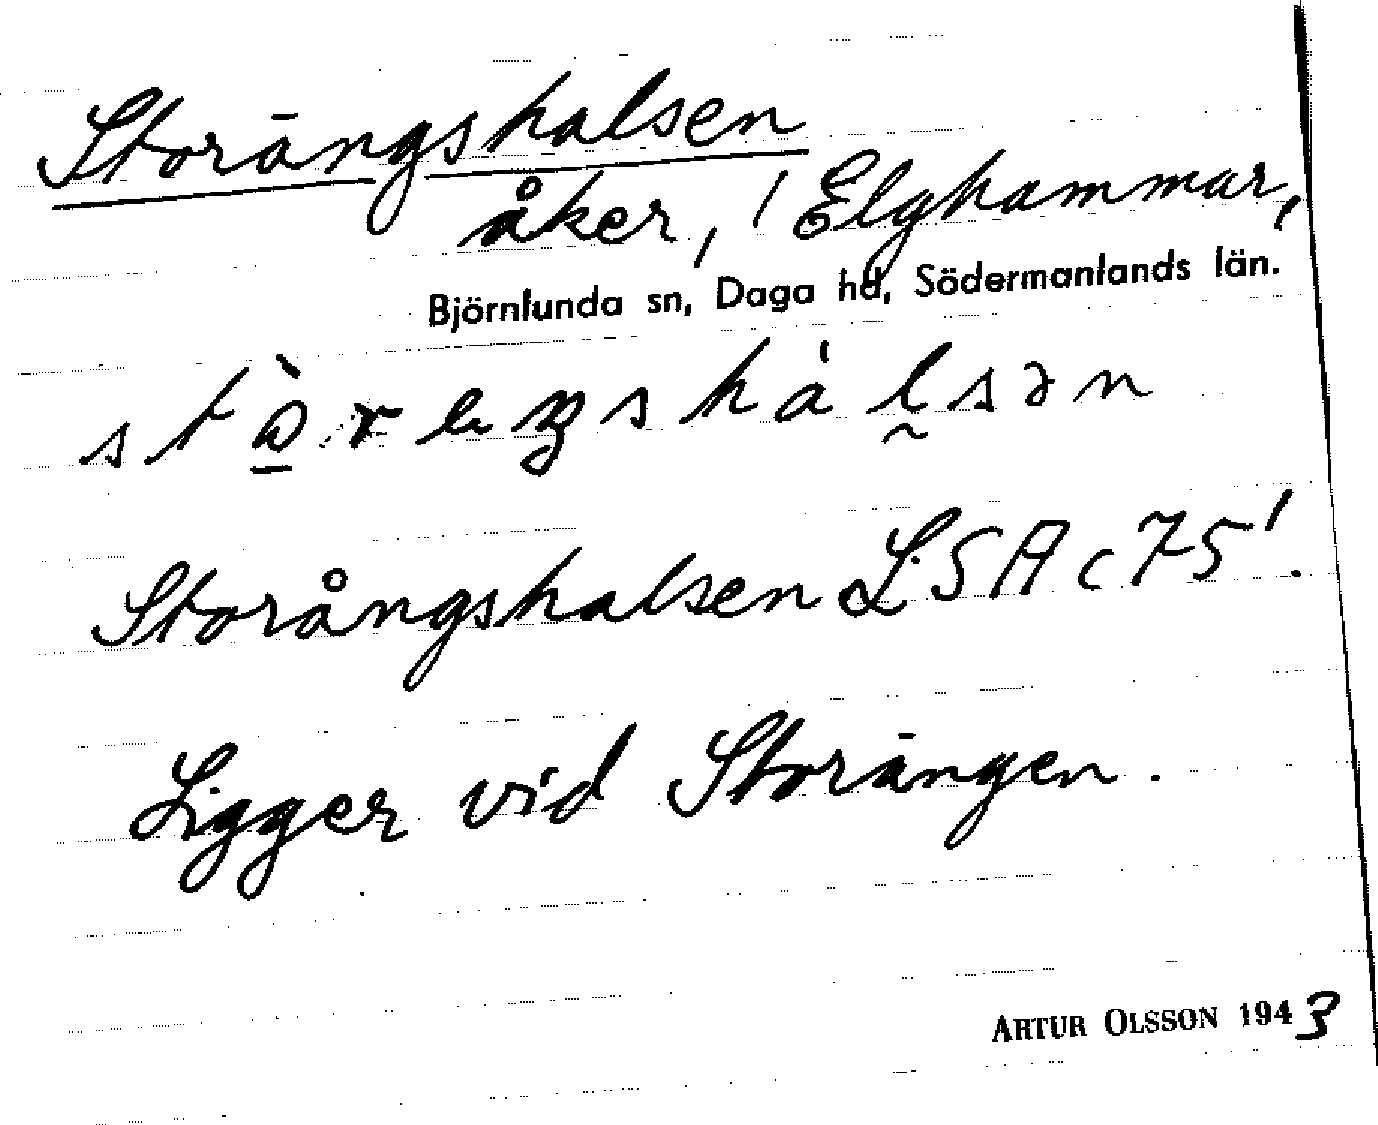 Storängshalsen
åker, / Elghammar,
Björnlunda sn, Daga hd, Södermanlands län.
Storångshalsen LSA c 75 /.
Ligger vid Storängen.
ARTUR OLSSON 1943